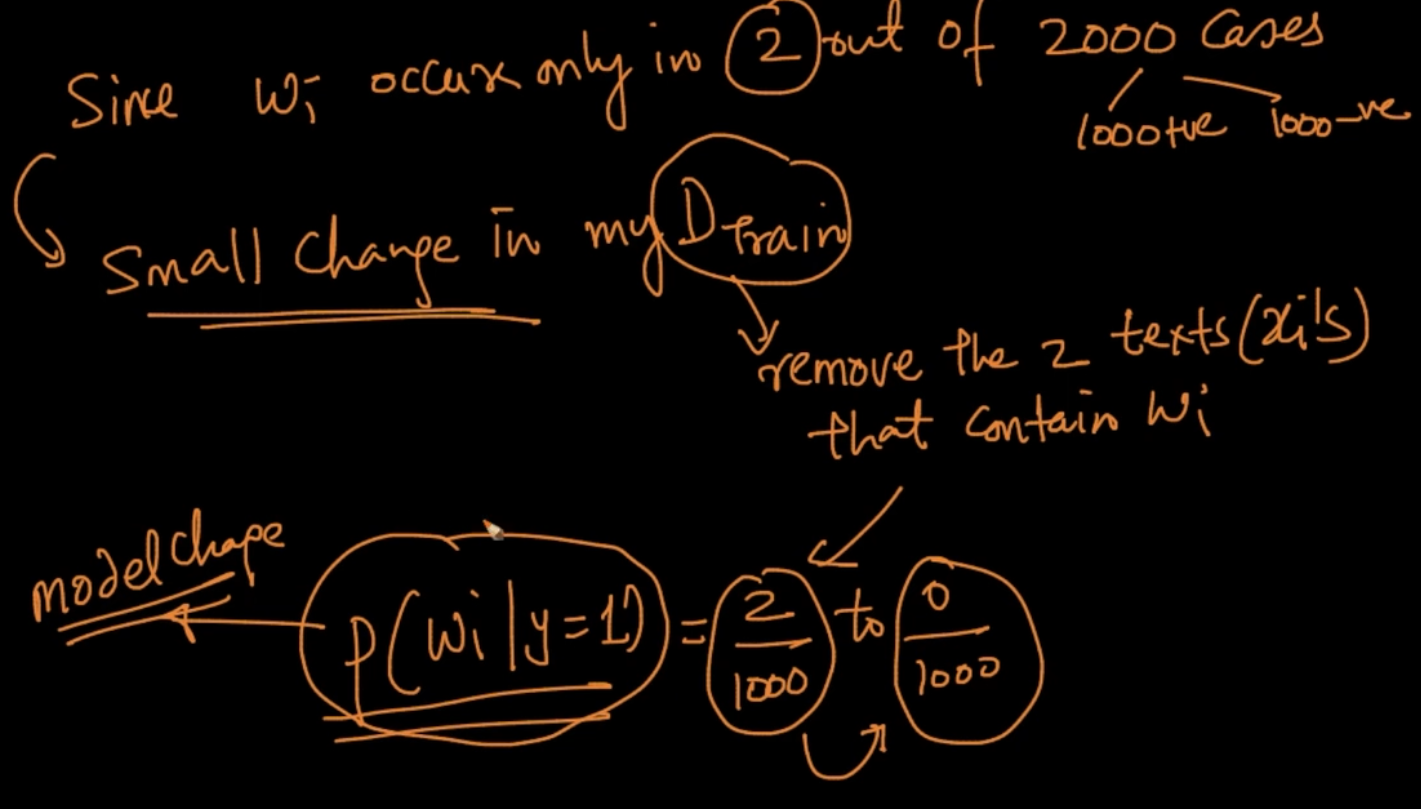 Since Wi occur only in 2 out of 2000 Cases
1000+ve 1000-ve
Small Change in my Dtrain
remove the 2 texts (xi's)
that contain Wi
model change
P(Wi|y=1) = 2/1000 to 0/1000